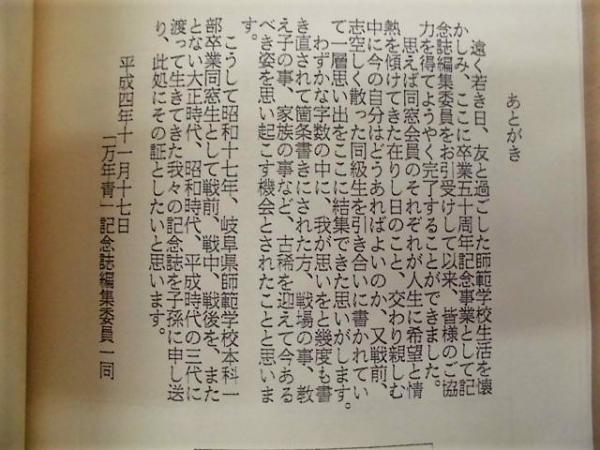 あとがき
遠く若き日、友と過ごした師範学校生活を懐
かしみ、ここに卒業五十周年記念事業として記
念誌編集委員をお引受けして以来、皆様のご協
力を得てようやく完了することができました。
思えば同窓会員のそれぞれが人生に希望と情
熱を傾けてきた在りし日のこと、交わり親しむ
中に今の自分はどうあればよいのか、又戦前、
志空しく散った同級生を引き合いに書かれてい
て一層思い出をここに結集できた思いがします。
わずかな字数の中に、我が思いをと幾度も書
き直されて箇条書きにされた方、戦場の事、教
え子の事、家族の事など、古稀を迎えて今ある
べき姿を思い起こす機会とされたことと思いま
す。
こうして昭和十七年、岐阜県師範学校本科一
部卒業同窓生として戦前、戦中、戦後を、また
とない大正時代、昭和時代、平成時代の三代に
渡って生きてきた我々の記念誌を子孫に申し送
り、此処にその証としたいと思います。
平成四年十一月十七日
一万年青一記念誌編集委員一同